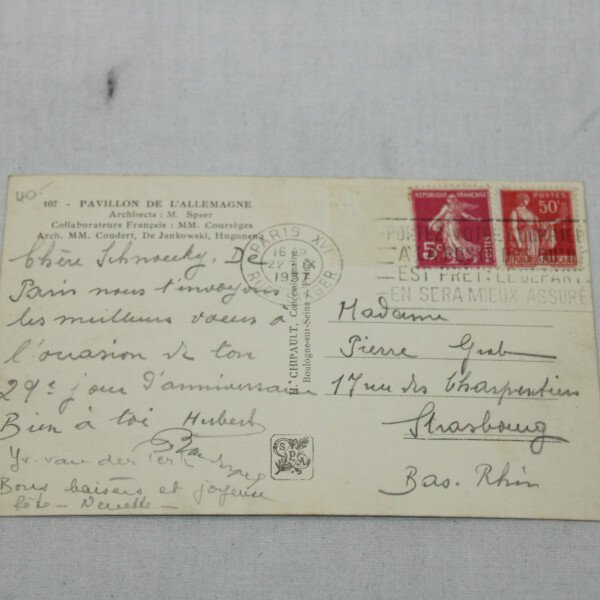 40-
107 - PAVILLON DE L'ALLEMAGNE
Architecte : M. Speer
Collaborateurs Français : MM. Courrèges
Arch. MM. Coudert, De Jankowski, Hugonenq
Chère Schnoecky, De
Paris nous t'envoyons
les meilleurs voeux à
l'occasion de ton
29e jour d'anniversaire
Bien à toi Hubert
Yv van der
Bons baisers et joyeuse
fête -
PARIS XVI
27 IX
1937
E. CHIPAULT, Concessionnaire
Boulogne-sur-Seine
SPA
REPUBLIQUE FRANÇAISE
5c
POSTES
POSTES
50c
REPUBLIQUE FRANÇAISE
EST PRÊT : LE DEPART
EN SERA MIEUX ASSURÉ
Madame
Pierre Grab
17 rue des Charpentiers
Strasbourg
Bas. Rhin